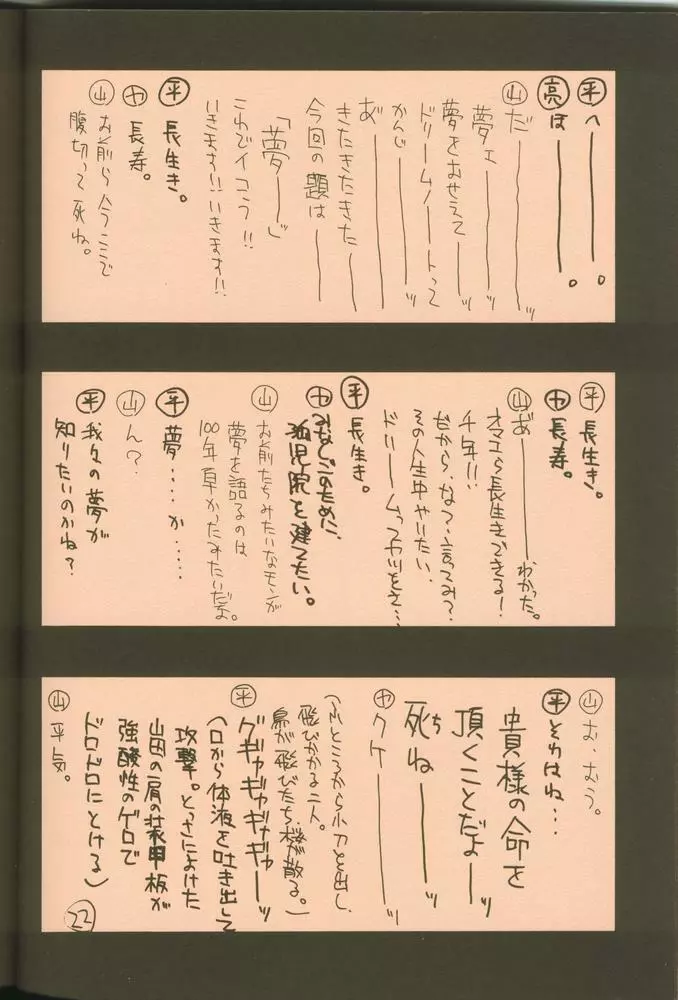 ㊥ へ———。
亮 は———。
山 だ———ッ
夢ェ———ッ
夢をおせえて———ッ
ドリームノートって
かんじ———ッ
あ゛———
きたきたきた———
今回の題は———
「夢———」
これでイコう!!
いきます!!いきます!!
平 長生き。
ヤ 長寿。
山 お前ら今ここで
腹切って死ね。
平 長生き。
ヤ 長寿。
山 あ゛———わかった。
オマエら長生きできる!
千年!!
だから、な?言ってみ?
その人生中やいたい、
ドリームってヤツをさ…
平 長生き。
ヤ みなしごのために、
孤児院を建てたい。
山 お前たちみたいなモンが
夢を語るのは
100年早かったみたいだよ。
平 夢‥‥か‥‥‥
山 ん?
平 我々の夢が
知りたいのかね?
山 お、おう。
平 それはね…
貴様の命を
頂くことだよ———ッ
死ね———ッ
ヤ クケ———ッ
(ふところから小刀を出し、
飛びかかる二人。
鳥が飛びたち、桜が散る。)
平 グギャギャギャギャーッ
(口から体液を吐き出して
攻撃。とっさによけた
山田の肩の装甲板が
強酸性のゲロで
ドロドロにとける)
山 平気。
22